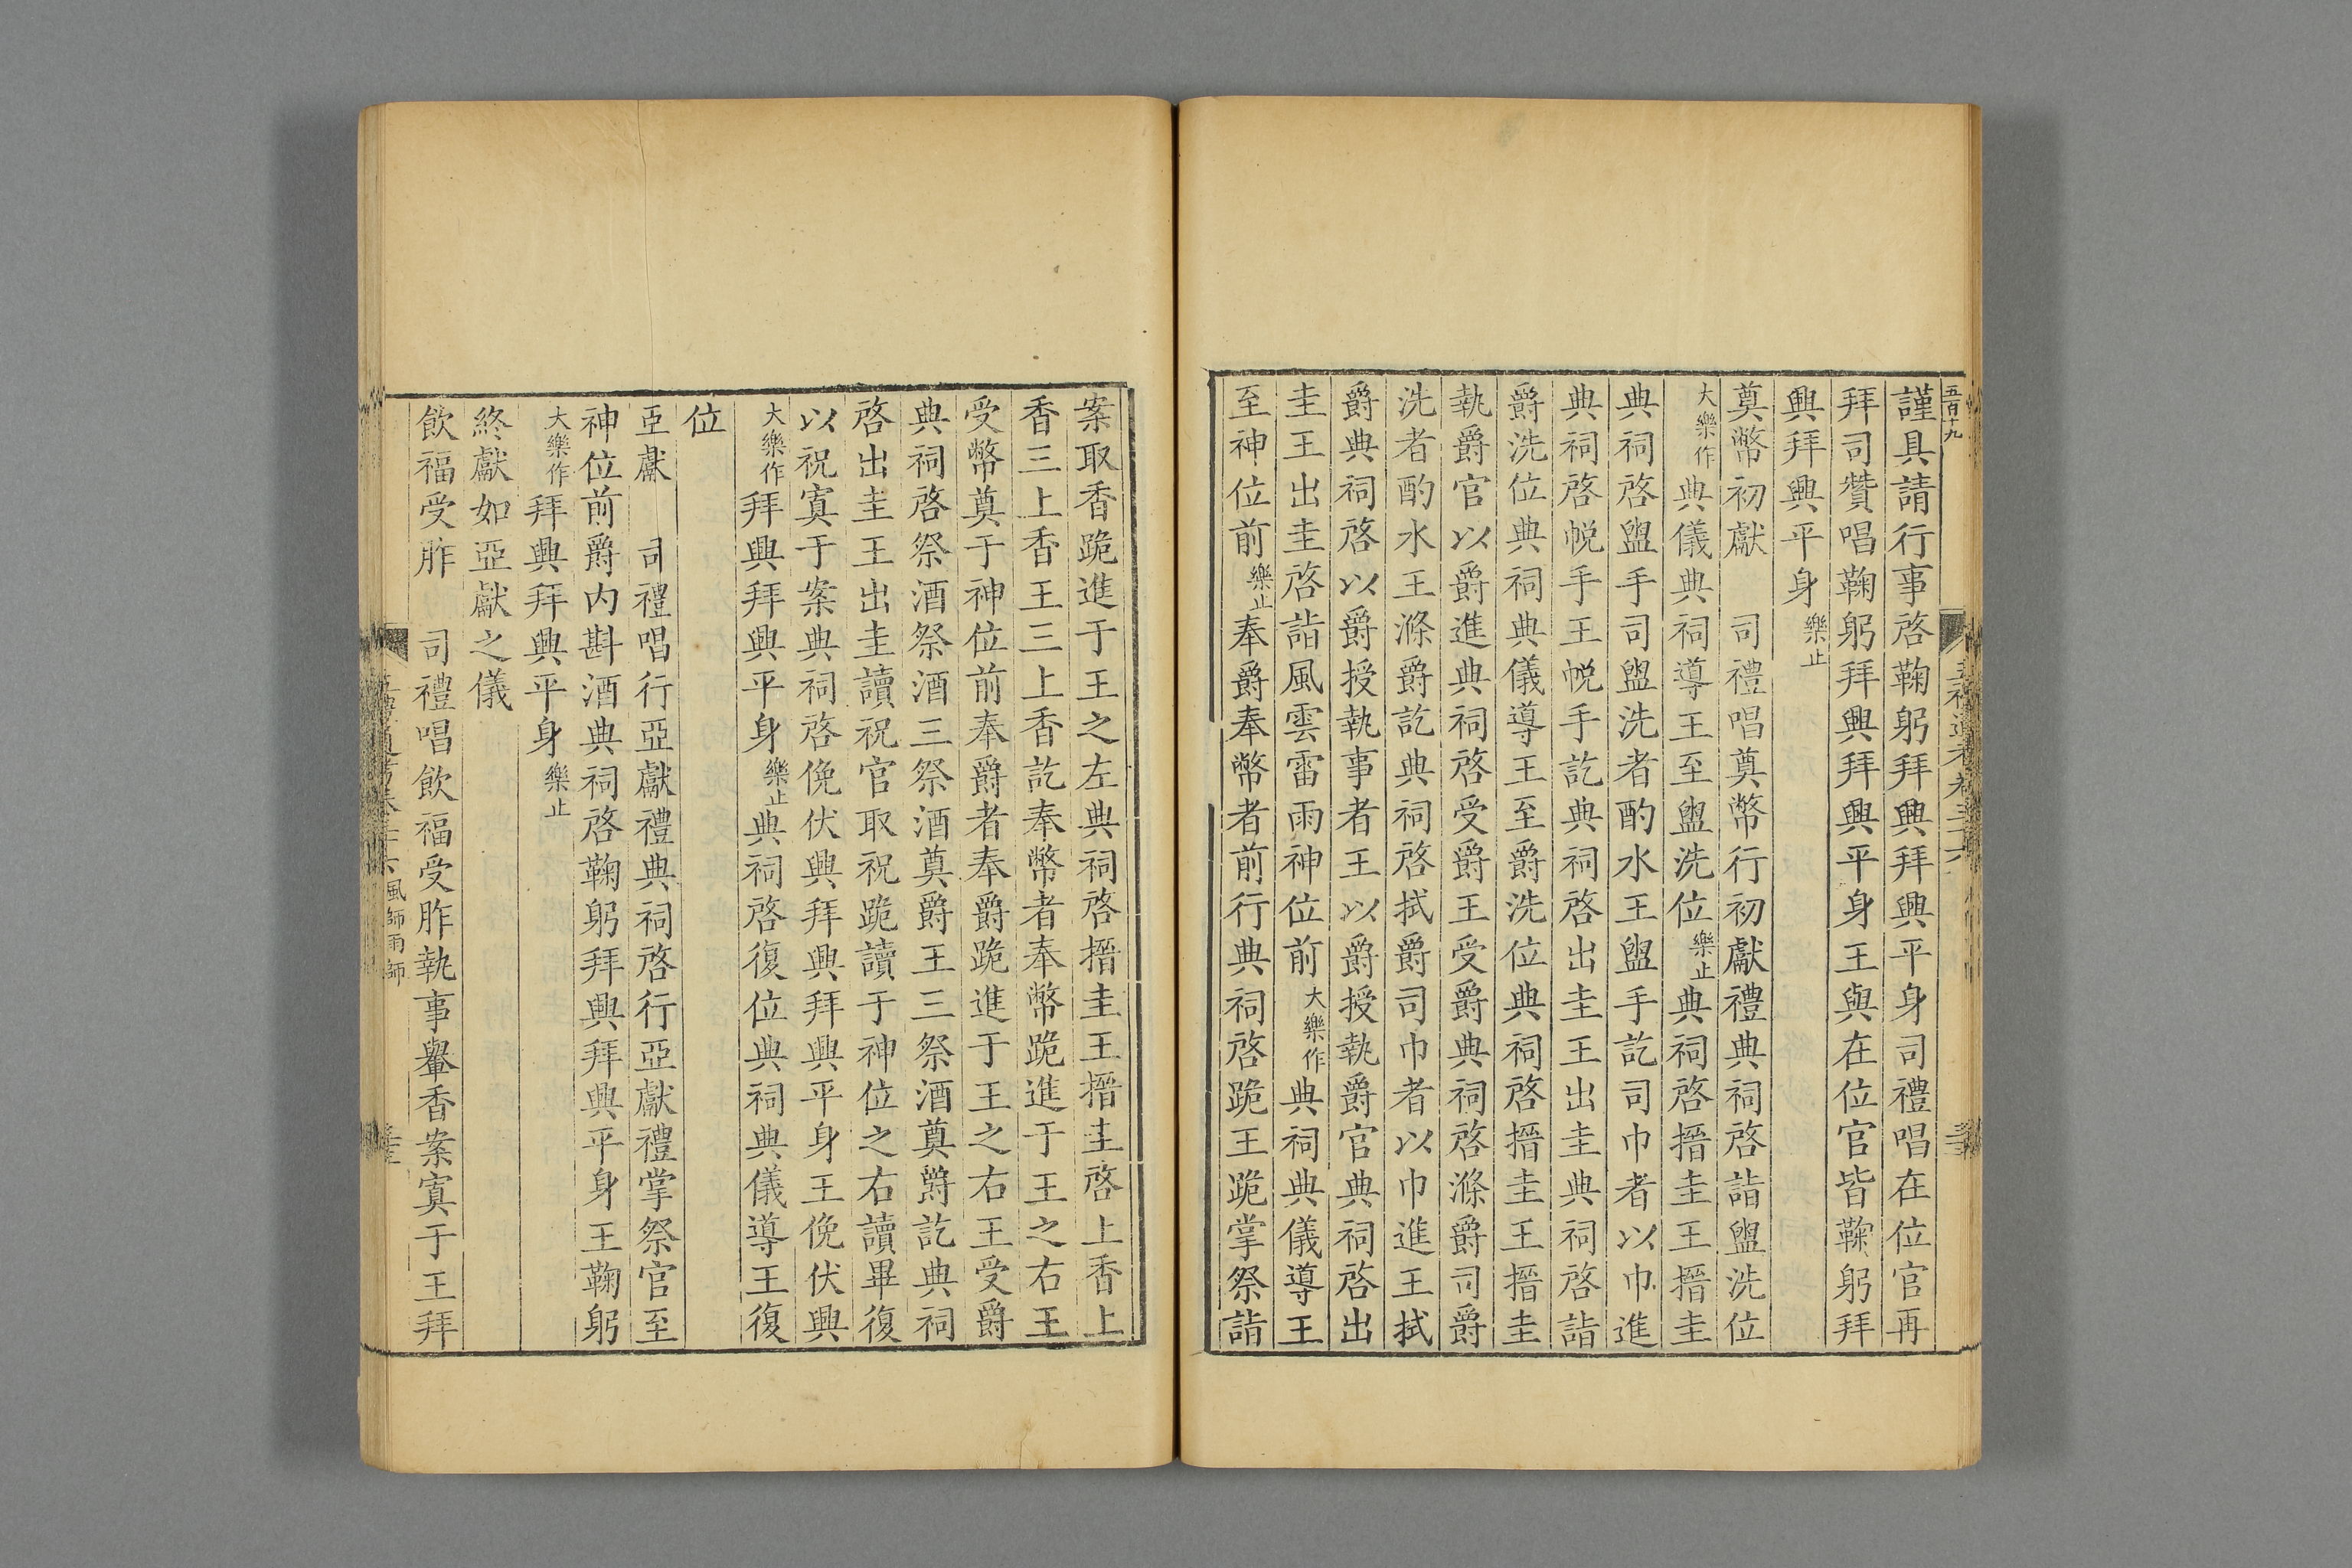 五百十九
謹具請行事啓鞠躬拜興拜興平身司禮唱在位官再
拜司贊唱鞠躬拜興拜興平身王與在位官皆鞠躬拜
興拜興平身樂止
奠幣初獻　司禮唱奠幣行初獻禮典祠啓詣盥洗位
大樂作典儀典祠導王至盥洗位樂止典祠啓搢圭王搢圭
典祠啓盥手司盥洗者酌水王盥手訖司巾者以巾進
典祠啓帨手王帨手訖典祠啓出圭王出圭典祠啓詣
爵洗位典祠典儀導王至爵洗位典祠啓搢圭王搢圭
執爵官以爵進典祠啓受爵王受爵典祠啓滌爵司爵
洗者酌水王滌爵訖典祠啓拭爵司巾者以巾進王拭
爵典祠啓以爵授執事者王以爵授執爵官典祠啓出
圭王出圭啓詣風雲雷雨神位前大樂作典祠典儀導王
至神位前樂止奉爵奉幣者前行典祠啓跪王跪掌祭詣
案取香跪進于王之左典祠啓搢圭王搢圭啓上香上
香三上香王三上香訖奉幣者奉幣跪進于王之右王
受幣奠于神位前奉爵者奉爵跪進于王之右王受爵
典祠啓祭酒祭酒三祭酒奠爵王三祭酒奠爵訖典祠
啓出圭王出圭讀祝官取祝跪讀于神位之右讀畢復
以祝寘于案典祠啓俛伏興拜興拜興平身王俛伏興
大樂作拜興拜興平身樂止典祠啓復位典祠典儀導王復
位
亞獻　司禮唱行亞獻禮典祠啓行亞獻禮掌祭官至
神位前爵内斟酒典祠啓鞠躬拜興拜興平身王鞠躬
大樂作拜興拜興平身樂止
終獻如亞獻之儀
飲福受胙　司禮唱飲福受胙執事舉香案寘于王拜
風師雨師